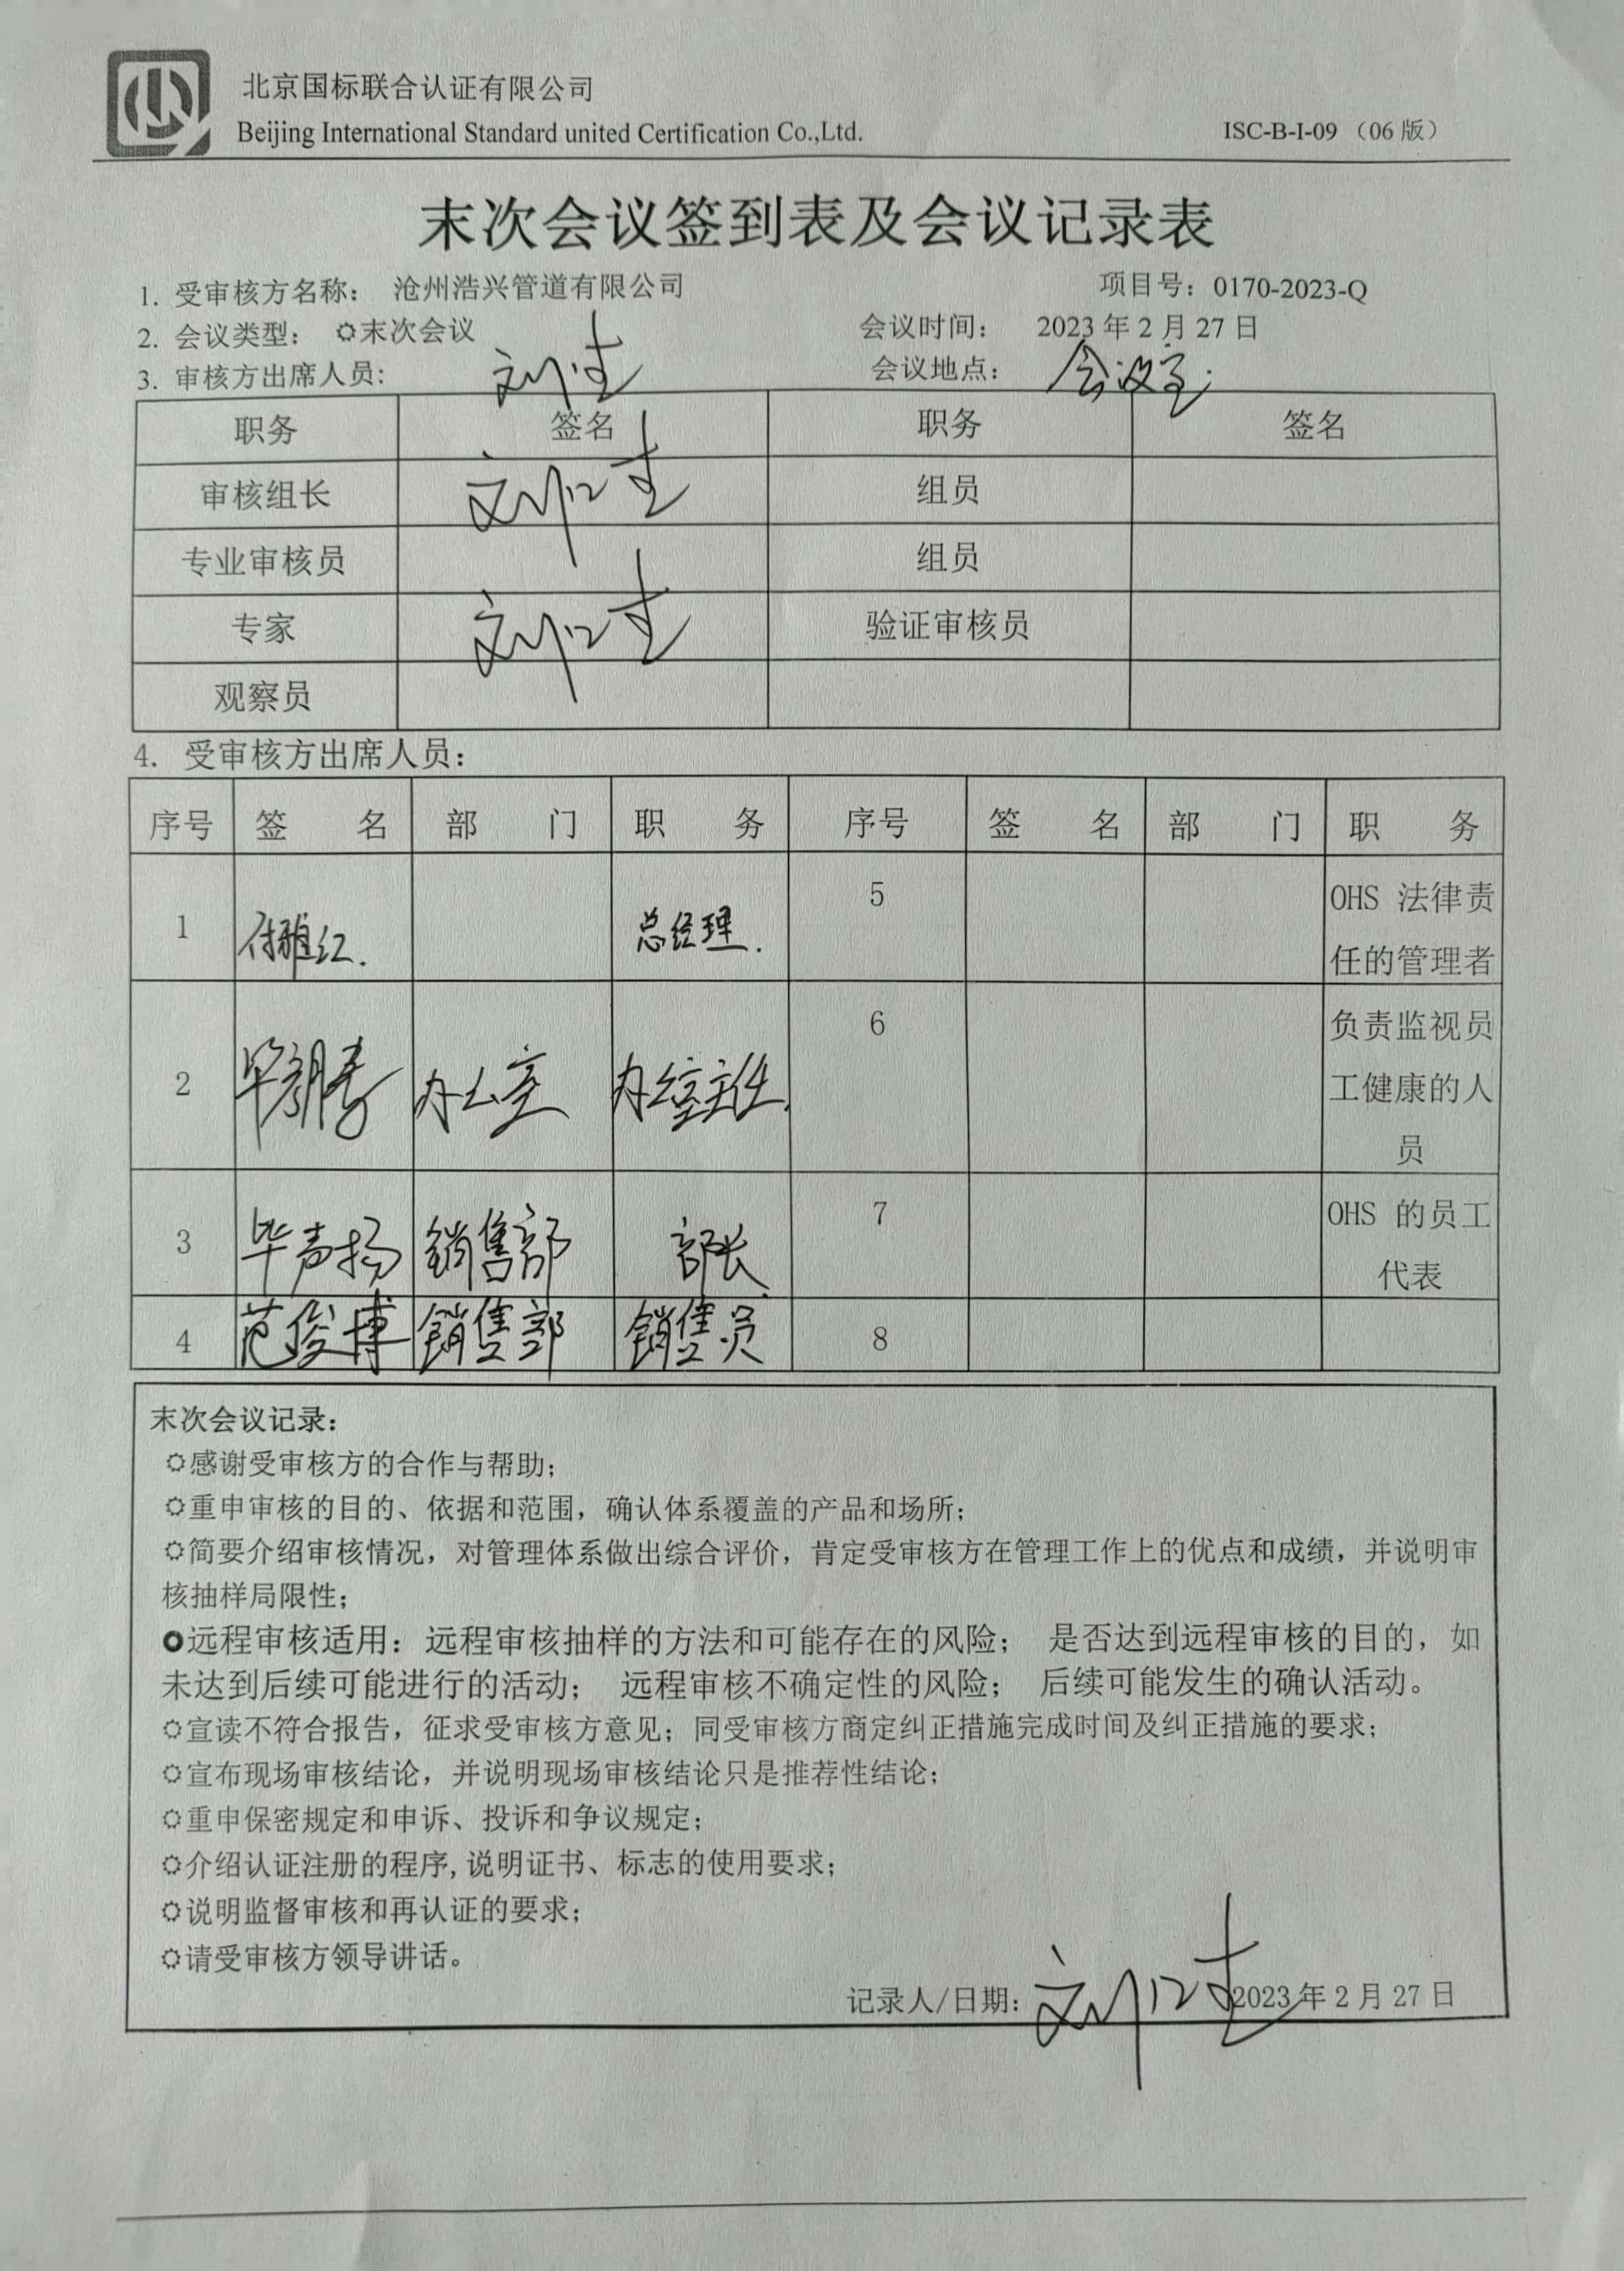 北京国标联合认证有限公司
Beijing International Standard united Certification Co.,Ltd.
ISC-B-I-09 （06 版）
末次会议签到表及会议记录表
1. 受审核方名称： 沧州浩兴管道有限公司 项目号：0170-2023-Q
2. 会议类型： 末次会议 会议时间： 2023 年 2 月 27 日
3. 审核方出席人员: 会议地点： 会议室
职务 签名 职务 签名
审核组长 组员
专业审核员 组员
专家 验证审核员
观察员
4. 受审核方出席人员：
序号 签 名 部 门 职 务 序号 签 名 部 门 职 务
1 付雅红 总经理 5 OHS 法律责
任的管理者
2 办公室 办公室主任 6 负责监视员
工健康的人
员
3 毕声扬 销售部 部长 7 OHS 的员工
代表
4 范俊博 销售部 销售员 8
末次会议记录：
感谢受审核方的合作与帮助；
重申审核的目的、依据和范围，确认体系覆盖的产品和场所；
简要介绍审核情况，对管理体系做出综合评价，肯定受审核方在管理工作上的优点和成绩，并说明审
核抽样局限性；
远程审核适用：远程审核抽样的方法和可能存在的风险； 是否达到远程审核的目的，如
未达到后续可能进行的活动； 远程审核不确定性的风险； 后续可能发生的确认活动。
宣读不符合报告，征求受审核方意见；同受审核方商定纠正措施完成时间及纠正措施的要求；
宣布现场审核结论，并说明现场审核结论只是推荐性结论；
重申保密规定和申诉、投诉和争议规定；
介绍认证注册的程序,说明证书、标志的使用要求；
说明监督审核和再认证的要求；
请受审核方领导讲话。
记录人/日期： 2023 年 2 月 27 日